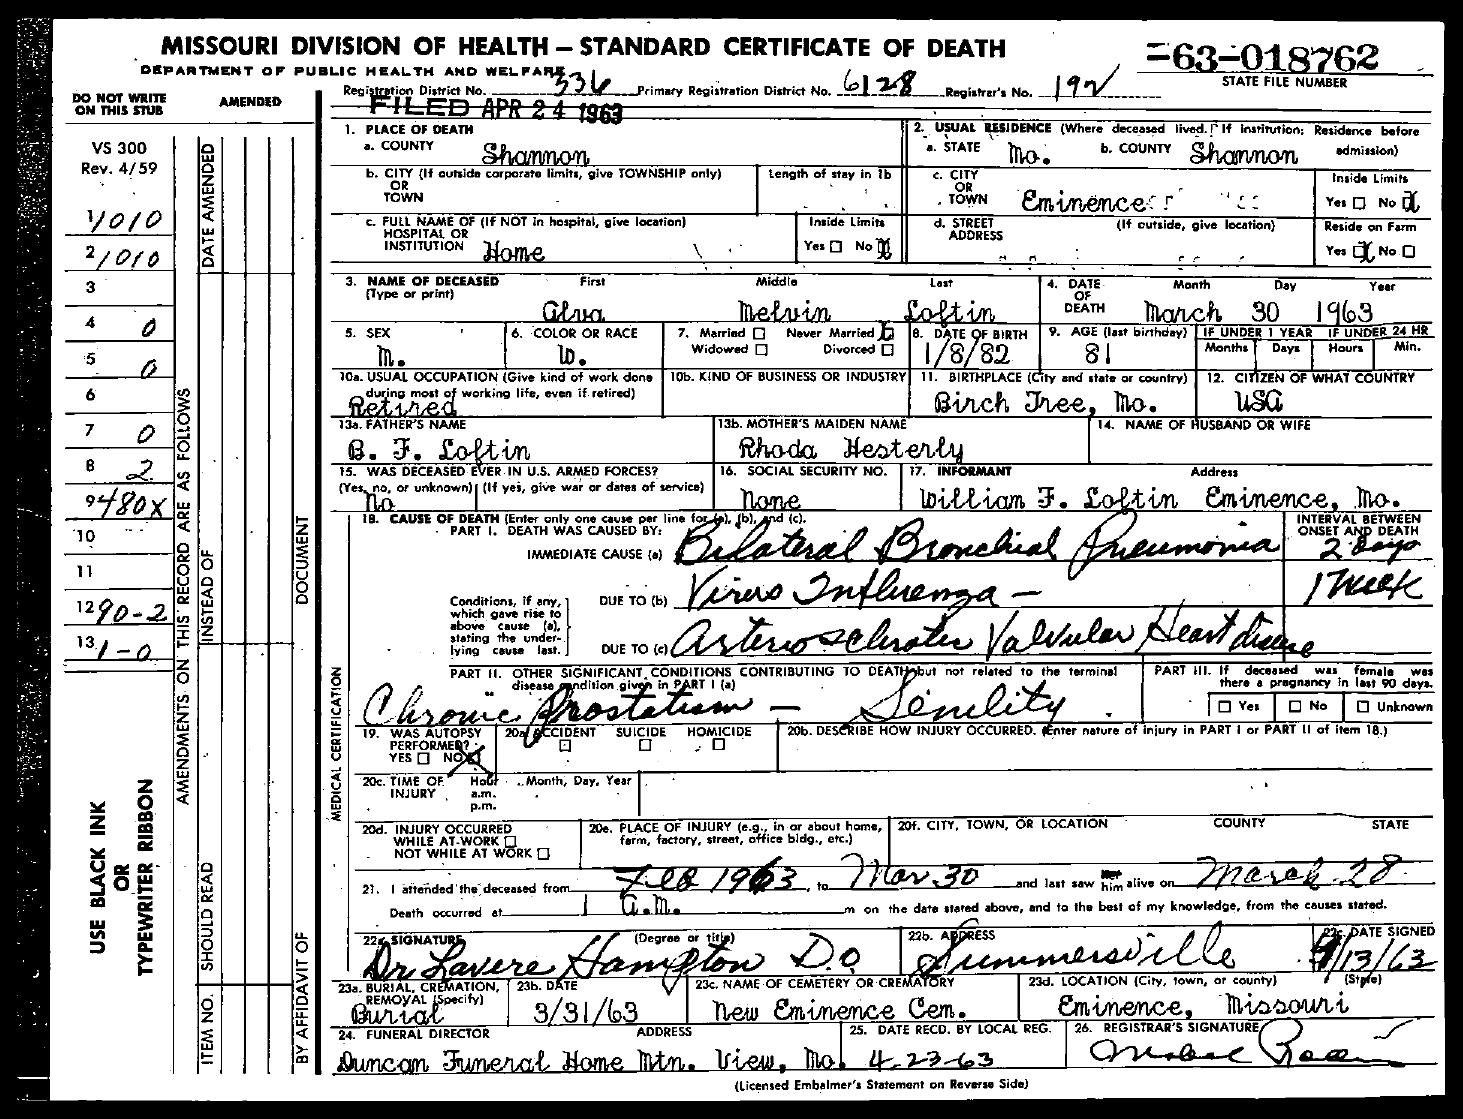 MISSOURI DIVISION OF HEALTH — STANDARD CERTIFICATE OF DEATH
-63-018762
DEPARTMENT OF PUBLIC HEALTH AND WELFARE
STATE FILE NUMBER
Registration District No. 336 Primary Registration District No. 6128 Registrar's No. 192
FILED APR 24 1963
DO NOT WRITE ON THIS STUB
AMENDED
VS 300
Rev. 4/59
1 1010
2 1010
3
4 0
5 0
6
7 0
8 2
9 480X
10
11
12 90-2
13 1-0
USE BLACK INK
OR
TYPEWRITER RIBBON
AMENDMENTS ON THIS RECORD ARE AS FOLLOWS
DATE AMENDED
INSTEAD OF
SHOULD READ
ITEM NO.
DOCUMENT
BY AFFIDAVIT OF
MEDICAL CERTIFICATION
1. PLACE OF DEATH
a. COUNTY Shannon
2. USUAL RESIDENCE (Where deceased lived. If institution: Residence before admission)
a. STATE Mo. b. COUNTY Shannon
b. CITY (If outside corporate limits, give TOWNSHIP only) OR TOWN
Length of stay in 1b
c. CITY OR TOWN Eminence
Inside Limits
Yes □ No X
c. FULL NAME OF (If NOT in hospital, give location) HOSPITAL OR INSTITUTION Home
Inside Limits
Yes □ No X
d. STREET ADDRESS (If outside, give location)
Reside on Farm
Yes X No □
3. NAME OF DECEASED (Type or print)
First Middle Last
Alva Melvin Loftin
4. DATE OF DEATH
Month Day Year
March 30 1963
5. SEX
M.
6. COLOR OR RACE
W.
7. Married □ Never Married
Widowed □ Divorced □
8. DATE OF BIRTH
1/8/82
9. AGE (last birthday)
81
IF UNDER 1 YEAR
Months Days
IF UNDER 24 HR
Hours Min.
10a. USUAL OCCUPATION (Give kind of work done during most of working life, even if retired)
Retired
10b. KIND OF BUSINESS OR INDUSTRY
11. BIRTHPLACE (City and state or country)
Birch Tree, Mo.
12. CITIZEN OF WHAT COUNTRY
USA
13a. FATHER'S NAME
B. F. Loftin
13b. MOTHER'S MAIDEN NAME
Rhoda Hesterly
14. NAME OF HUSBAND OR WIFE
15. WAS DECEASED EVER IN U.S. ARMED FORCES?
(Yes, no, or unknown) (If yes, give war or dates of service)
No
16. SOCIAL SECURITY NO.
None
17. INFORMANT Address
William F. Loftin Eminence, Mo.
18. CAUSE OF DEATH (Enter only one cause per line for (a), (b), and (c).
PART I. DEATH WAS CAUSED BY:
INTERVAL BETWEEN ONSET AND DEATH
IMMEDIATE CAUSE (a) Bilateral Bronchial Pneumonia 2 days
Conditions, if any, which gave rise to above cause (a), stating the underlying cause last.
DUE TO (b) Virus Influenza — 1 Week
DUE TO (c) Arteriosclerotic Valvular Heart disease
PART II. OTHER SIGNIFICANT CONDITIONS CONTRIBUTING TO DEATH but not related to the terminal disease condition given in PART I (a)
Chronic Prostatism — Senility
PART III. If deceased was female was there a pregnancy in last 90 days.
□ Yes □ No □ Unknown
19. WAS AUTOPSY PERFORMED?
YES □ NO X
20a. ACCIDENT SUICIDE HOMICIDE
□ □ □
20b. DESCRIBE HOW INJURY OCCURRED. (Enter nature of injury in PART I or PART II of item 18.)
20c. TIME OF INJURY Hour a.m. p.m. Month, Day, Year
20d. INJURY OCCURRED
WHILE AT WORK □
NOT WHILE AT WORK □
20e. PLACE OF INJURY (e.g., in or about home, farm, factory, street, office bldg., etc.)
20f. CITY, TOWN, OR LOCATION COUNTY STATE
21. I attended the deceased from Feb 1963, to Mar 30 and last saw her him alive on March 28
Death occurred at 1 a.m. m on the date stated above, and to the best of my knowledge, from the causes stated.
22a. SIGNATURE (Degree or title)
Dr Lavere Hampton D.O
22b. ADDRESS
Summersville
22c. DATE SIGNED
4/13/63
23a. BURIAL, CREMATION, REMOVAL (Specify)
Burial
23b. DATE
3/31/63
23c. NAME OF CEMETERY OR CREMATORY
New Eminence Cem.
23d. LOCATION (City, town, or county) (State)
Eminence, Missouri
24. FUNERAL DIRECTOR ADDRESS
Duncan Funeral Home Mtn. View, Mo.
25. DATE RECD. BY LOCAL REG.
4-23-63
26. REGISTRAR'S SIGNATURE
(Licensed Embalmer's Statement on Reverse Side)